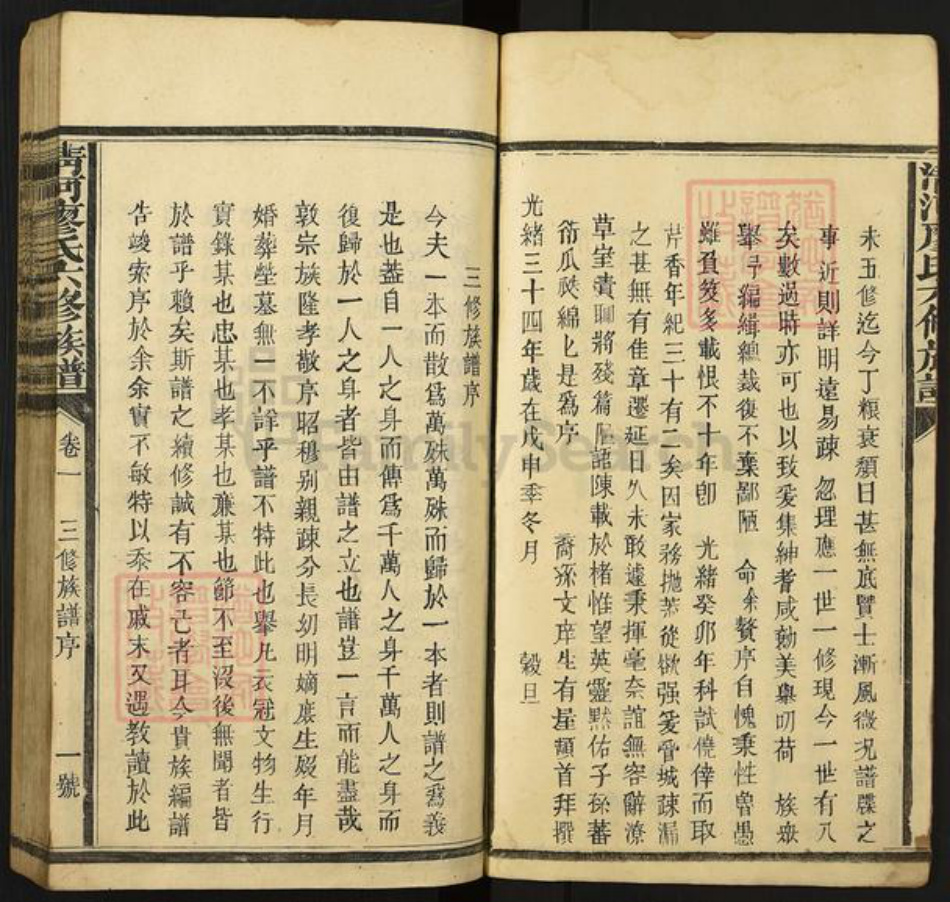 未五修迄今丁粮衰頹日甚無底賢士漸風微况譜牒之
事近則詳明遠易疎忽理應一世一修現今一世有八
矣數過時亦可也以致爰集紳耆咸勷美舉叨荷 族眾
舉予編緝總裁復不棄鄙陋 命余贅序自愧秉性魯愚
雖負笈多載恨不十年卽 光緒癸卯年科試僥倖而取
芹香年紀三十有二矣因家務拋荒從欲强爰
之甚無有佳章遷延日久未敢遽秉揮毫奈誼無容辭潦
草塞責聊將殘篇 語陳載於楮惟望英靈默佑子孫蕃
衍瓜瓞綿匕是爲序 裔孫文庠生有星頓首拜撰
光緒三十四年歲在戊申季冬月 穀旦
三修族譜序
今夫一本而散爲萬殊萬殊而歸於一本者則譜之爲義
是也葢自一人之身而傳爲千萬人之身千萬人之身而
復歸於一人之身者皆由譜之立也譜豈一言而能盡哉
敦宗族隆孝敬序昭穆别親疎分長幼明嫡庶生殁年月
婚葬塋墓無一不詳乎譜不特此也舉凡衣冠文物生行
實錄某也忠某也孝某也亷某也節不至沒後無聞者皆
於譜乎賴矣斯譜之續修誠有不容已者耳今貴族編譜
告竣索序於余余實不敏特以忝在戚末又遇教讀於此
清河廖氏六修族譜 卷一 三修族譜序 一號
清河廖氏六修族譜
FamilySearch